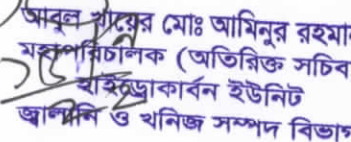 আবুল খায়ের মোঃ আমিনুর রহমান
মহাপরিচালক (অতিরিক্ত সচিব
হাইড্রোকার্বন ইউনিট
জ্বালানি ও খনিজ সম্পদ বিভাগ